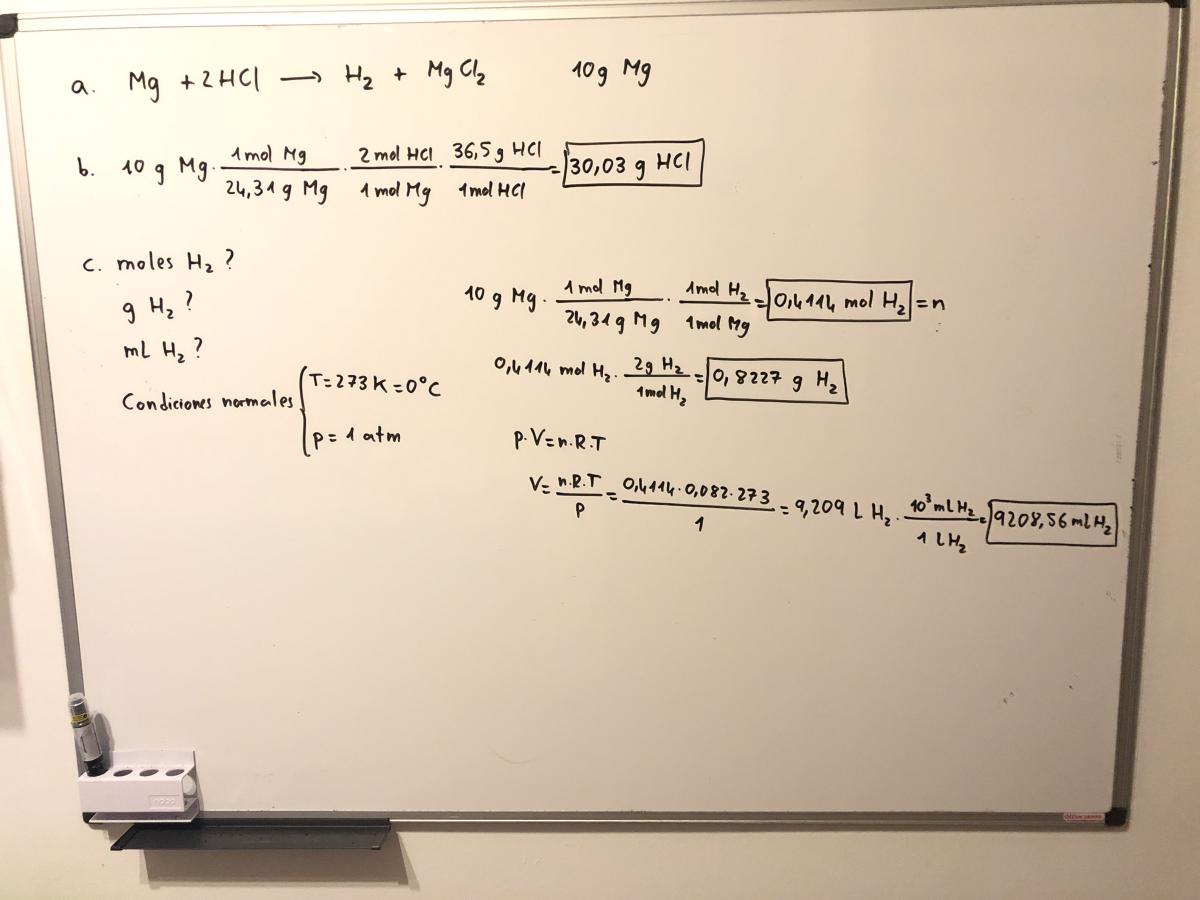 a. Mg + 2HCl ⟶ H₂ + MgCl₂ 10g Mg
b. 10 g Mg · 1mol Mg / 24,31 g Mg · 2 mol HCl / 1 mol Mg · 36,5 g HCl / 1mol HCl = 30,03 g HCl
c. moles H₂ ?
g H₂ ?
mL H₂ ?
Condiciones normales { T = 273 K = 0°C
p = 1 atm
10 g Mg · 1 mol Mg / 24,31 g Mg · 1mol H₂ / 1mol Mg = 0,4114 mol H₂ = n
0,4114 mol H₂ · 2g H₂ / 1mol H₂ = 0,8227 g H₂
p·V = n.R.T
V = n.R.T / p = 0,4114 · 0,082 · 273 / 1 = 9,209 L H₂ · 10³ mL H₂ / 1 L H₂ = 9208,56 mL H₂
nobo